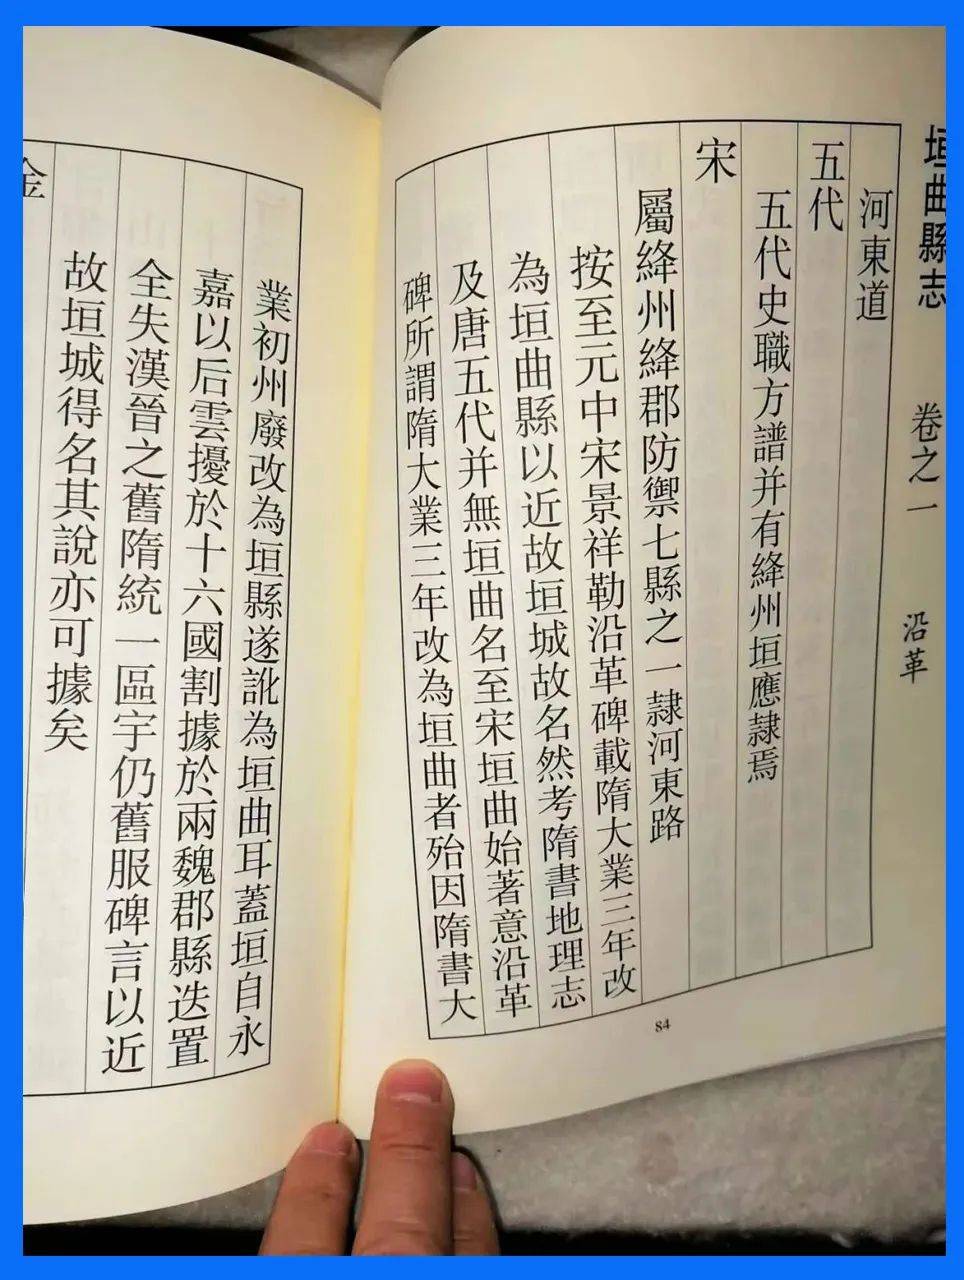 垣曲縣志 卷之一 沿革
河東道
五代
五代史職方譜并有絳州垣應隸焉
宋
屬絳州絳郡防禦七縣之一隷河東路
按至元中宋景祥勒沿革碑載隋大業三年改
為垣曲縣以近故垣城故名然考隋書地理志
及唐五代并無垣曲名至宋垣曲始著意沿革
碑所謂隋大業三年改為垣曲者殆因隋書大
84
業初州廢改為垣縣遂訛為垣曲耳蓋垣自永
嘉以后雲擾於十六國割據於兩魏郡縣迭置
全失漢晉之舊隋統一區宇仍舊服碑言以近
故垣城得名其說亦可據矣
金